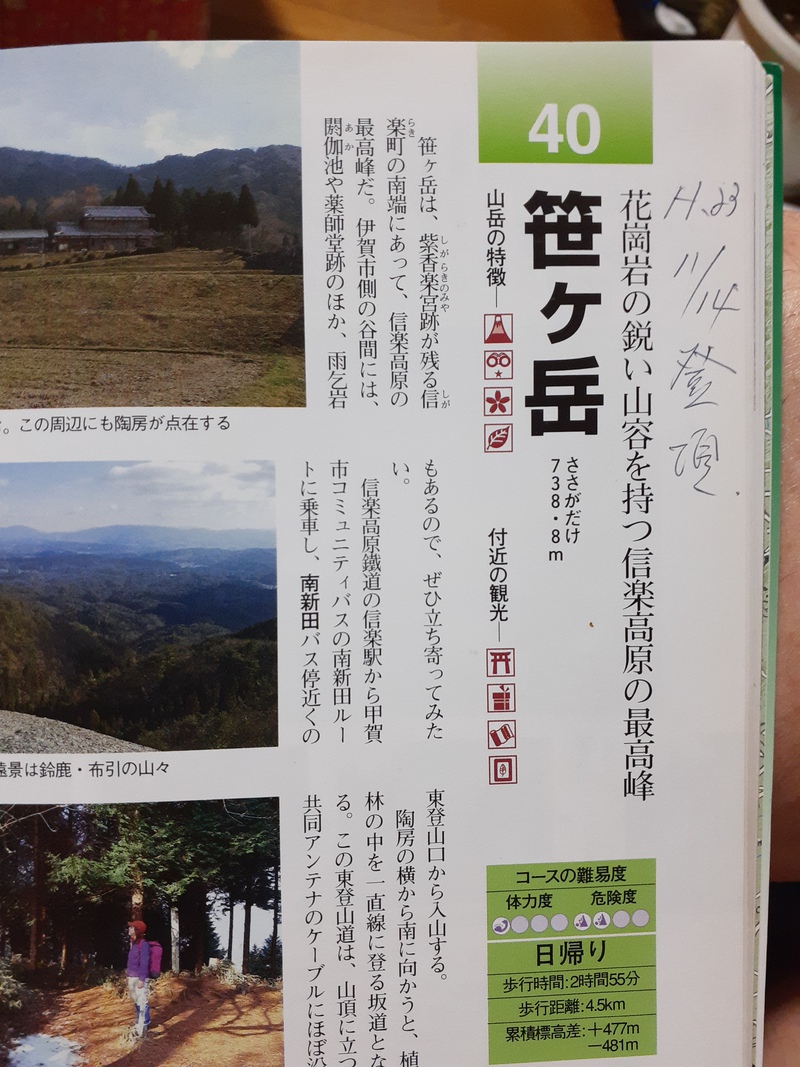 H.23 11/14 登頂.
40
花崗岩の鋭い山容を持つ信楽高原の最高峰
笹ヶ岳
ささがだけ
738・8m
山岳の特徴
付近の観光
コースの難易度
体力度 危険度
日帰り
歩行時間:2時間55分
歩行距離:4.5km
累積標高差:+477m
−481m
笹ヶ岳は、紫香楽宮跡が残る信
しがらきのみや
しが
楽町の南端にあって、信楽高原の
らき
最高峰だ。伊賀市側の谷間には、
閼伽池や薬師堂跡のほか、雨乞岩
あか
もあるので、ぜひ立ち寄ってみた
い。
信楽高原鐵道の信楽駅から甲賀
市コミュニティバスの南新田ルー
トに乗車し、南新田バス停近くの
東登山口から入山する。
陶房の横から南に向かうと、植
林の中を一直線に登る坂道とな
る。この東登山道は、山頂に立つ
共同アンテナのケーブルにほぼ沿
。この周辺にも陶房が点在する
遠景は鈴鹿・布引の山々